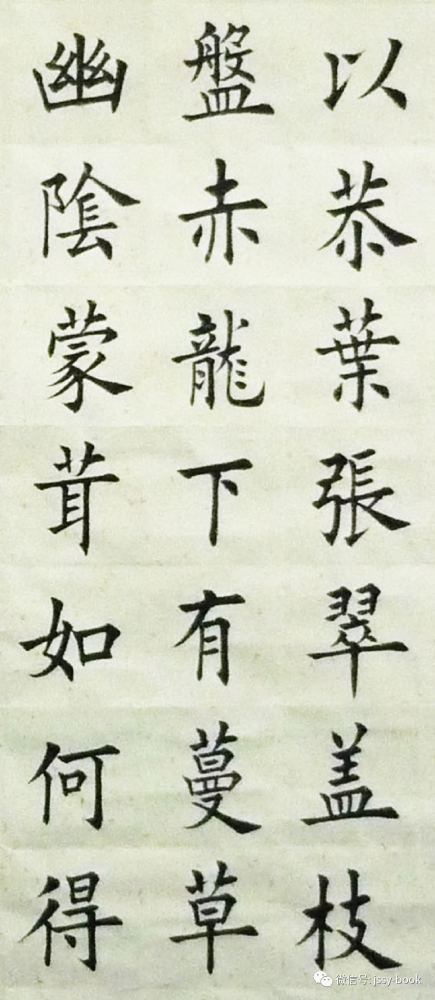 以恭葉張翠盖枝
盤赤龍下有蔓草
幽陰蒙茸如何得
微信号: jssy-book